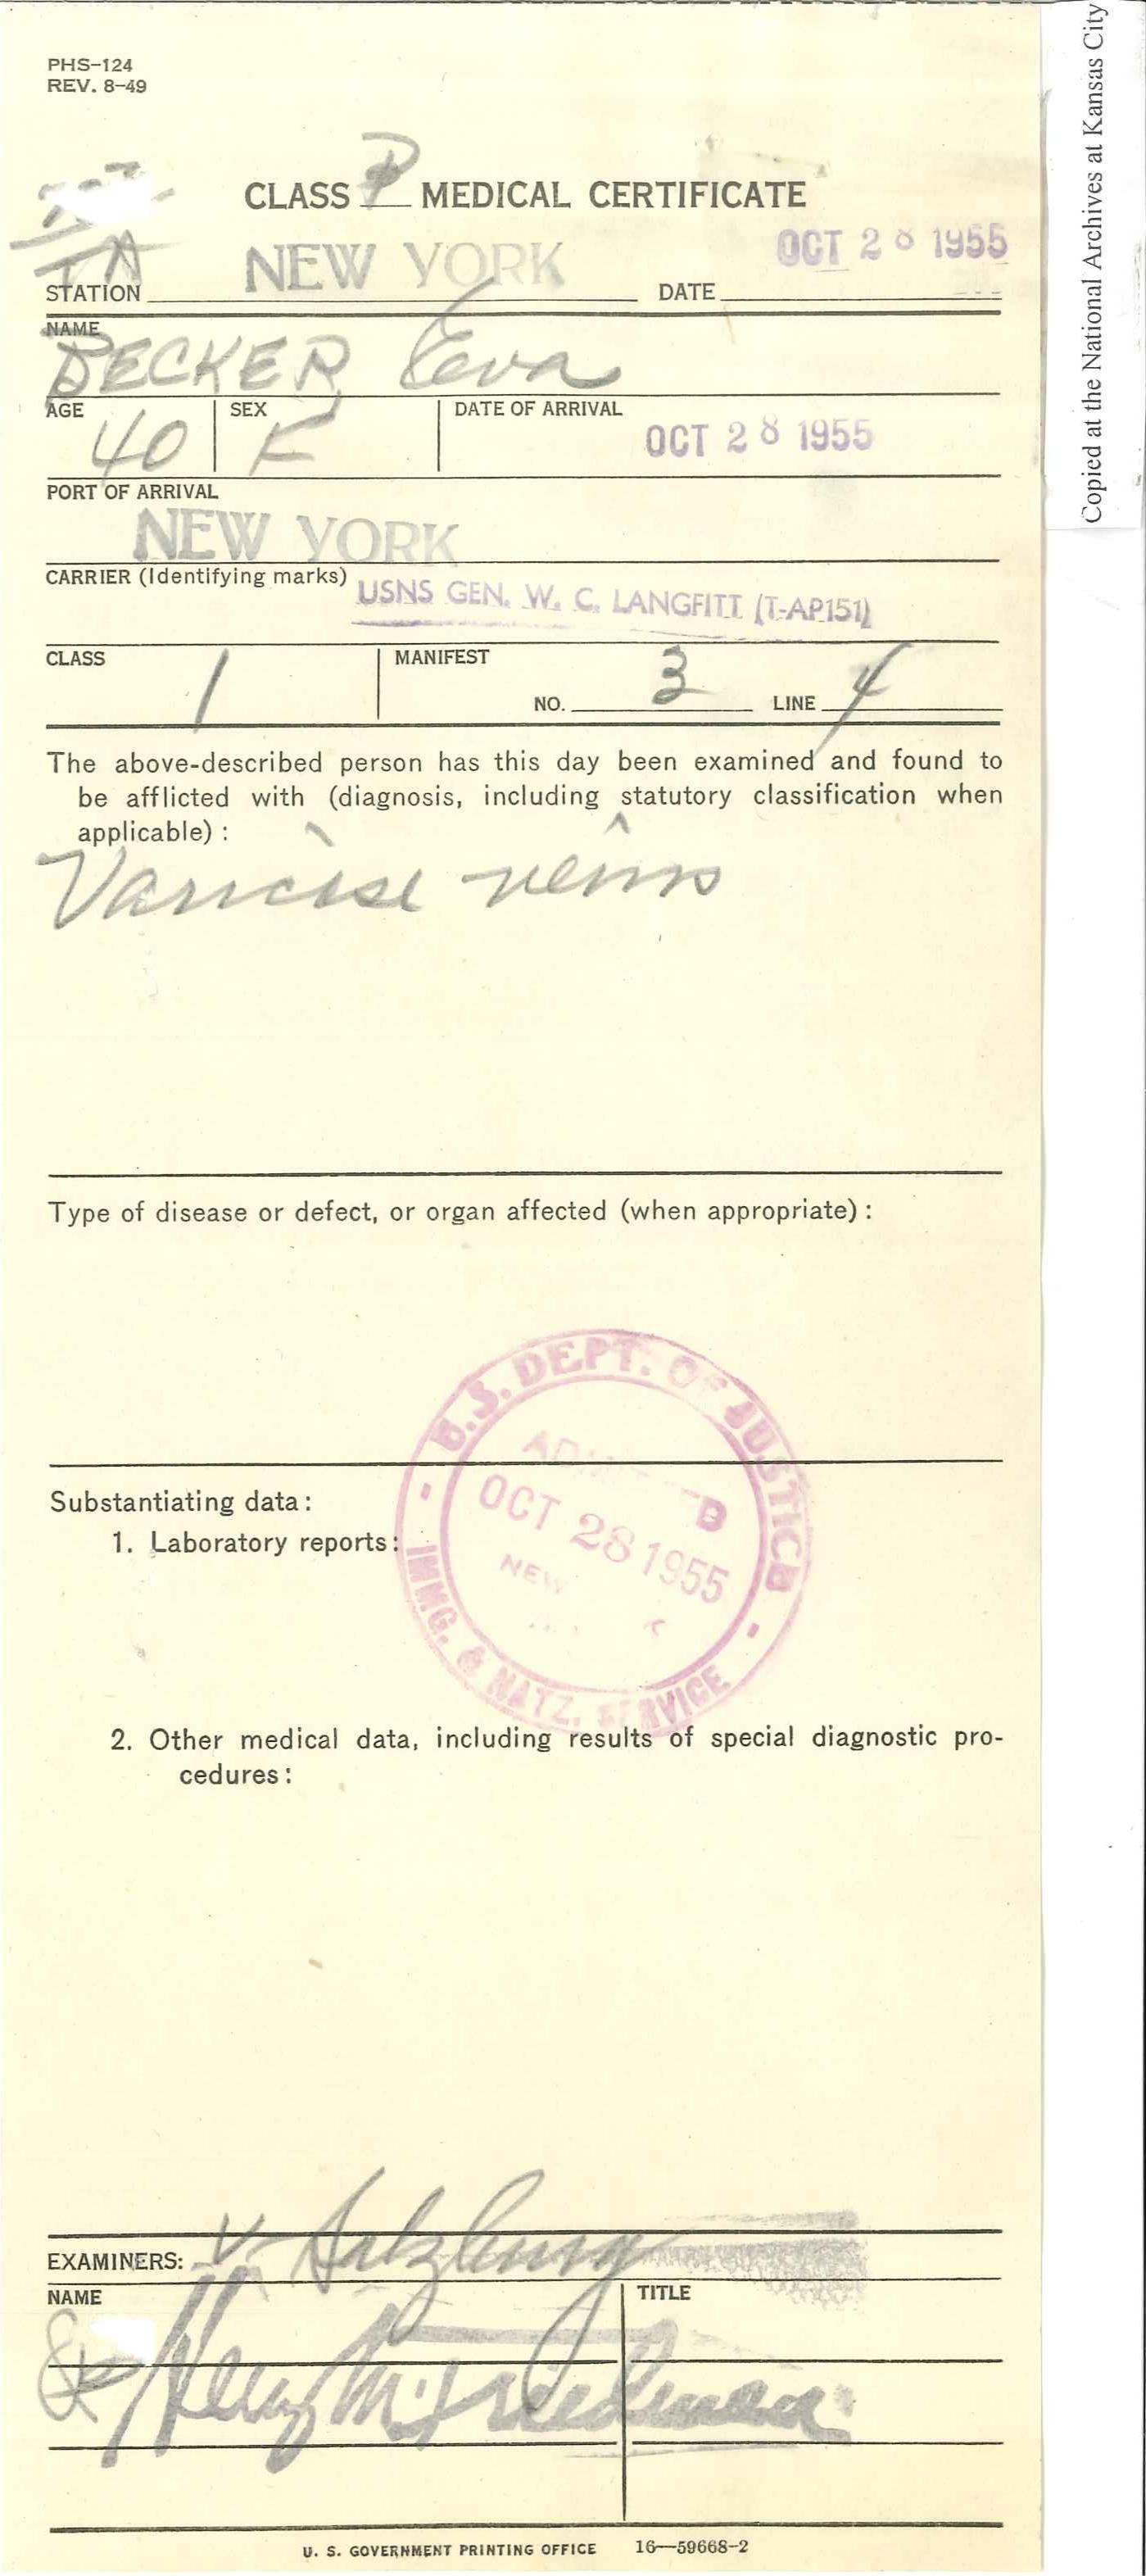 PHS-124
REV. 8-49
CLASS B MEDICAL CERTIFICATE
STATION NEW YORK DATE OCT 28 1955
NAME
BECKER Eva
AGE 40 SEX F DATE OF ARRIVAL OCT 28 1955
PORT OF ARRIVAL
NEW YORK
CARRIER (Identifying marks) USNS GEN. W. C. LANGFITT (T-AP151)
CLASS 1 MANIFEST NO. 3 LINE 4
The above-described person has this day been examined and found to
be afflicted with (diagnosis, including statutory classification when
applicable) :
Varicose veins
Type of disease or defect, or organ affected (when appropriate) :
U.S. DEPT. OF JUSTICE
ADMITTED
OCT 28 1955
NEW
IMMG. & NATZ. SERVICE
Substantiating data:
1. Laboratory reports:
2. Other medical data, including results of special diagnostic pro-
cedures:
EXAMINERS: V. Salzburg
NAME TITLE
M. Friedman
U. S. GOVERNMENT PRINTING OFFICE 16—59668-2
Copied at the National Archives at Kansas City